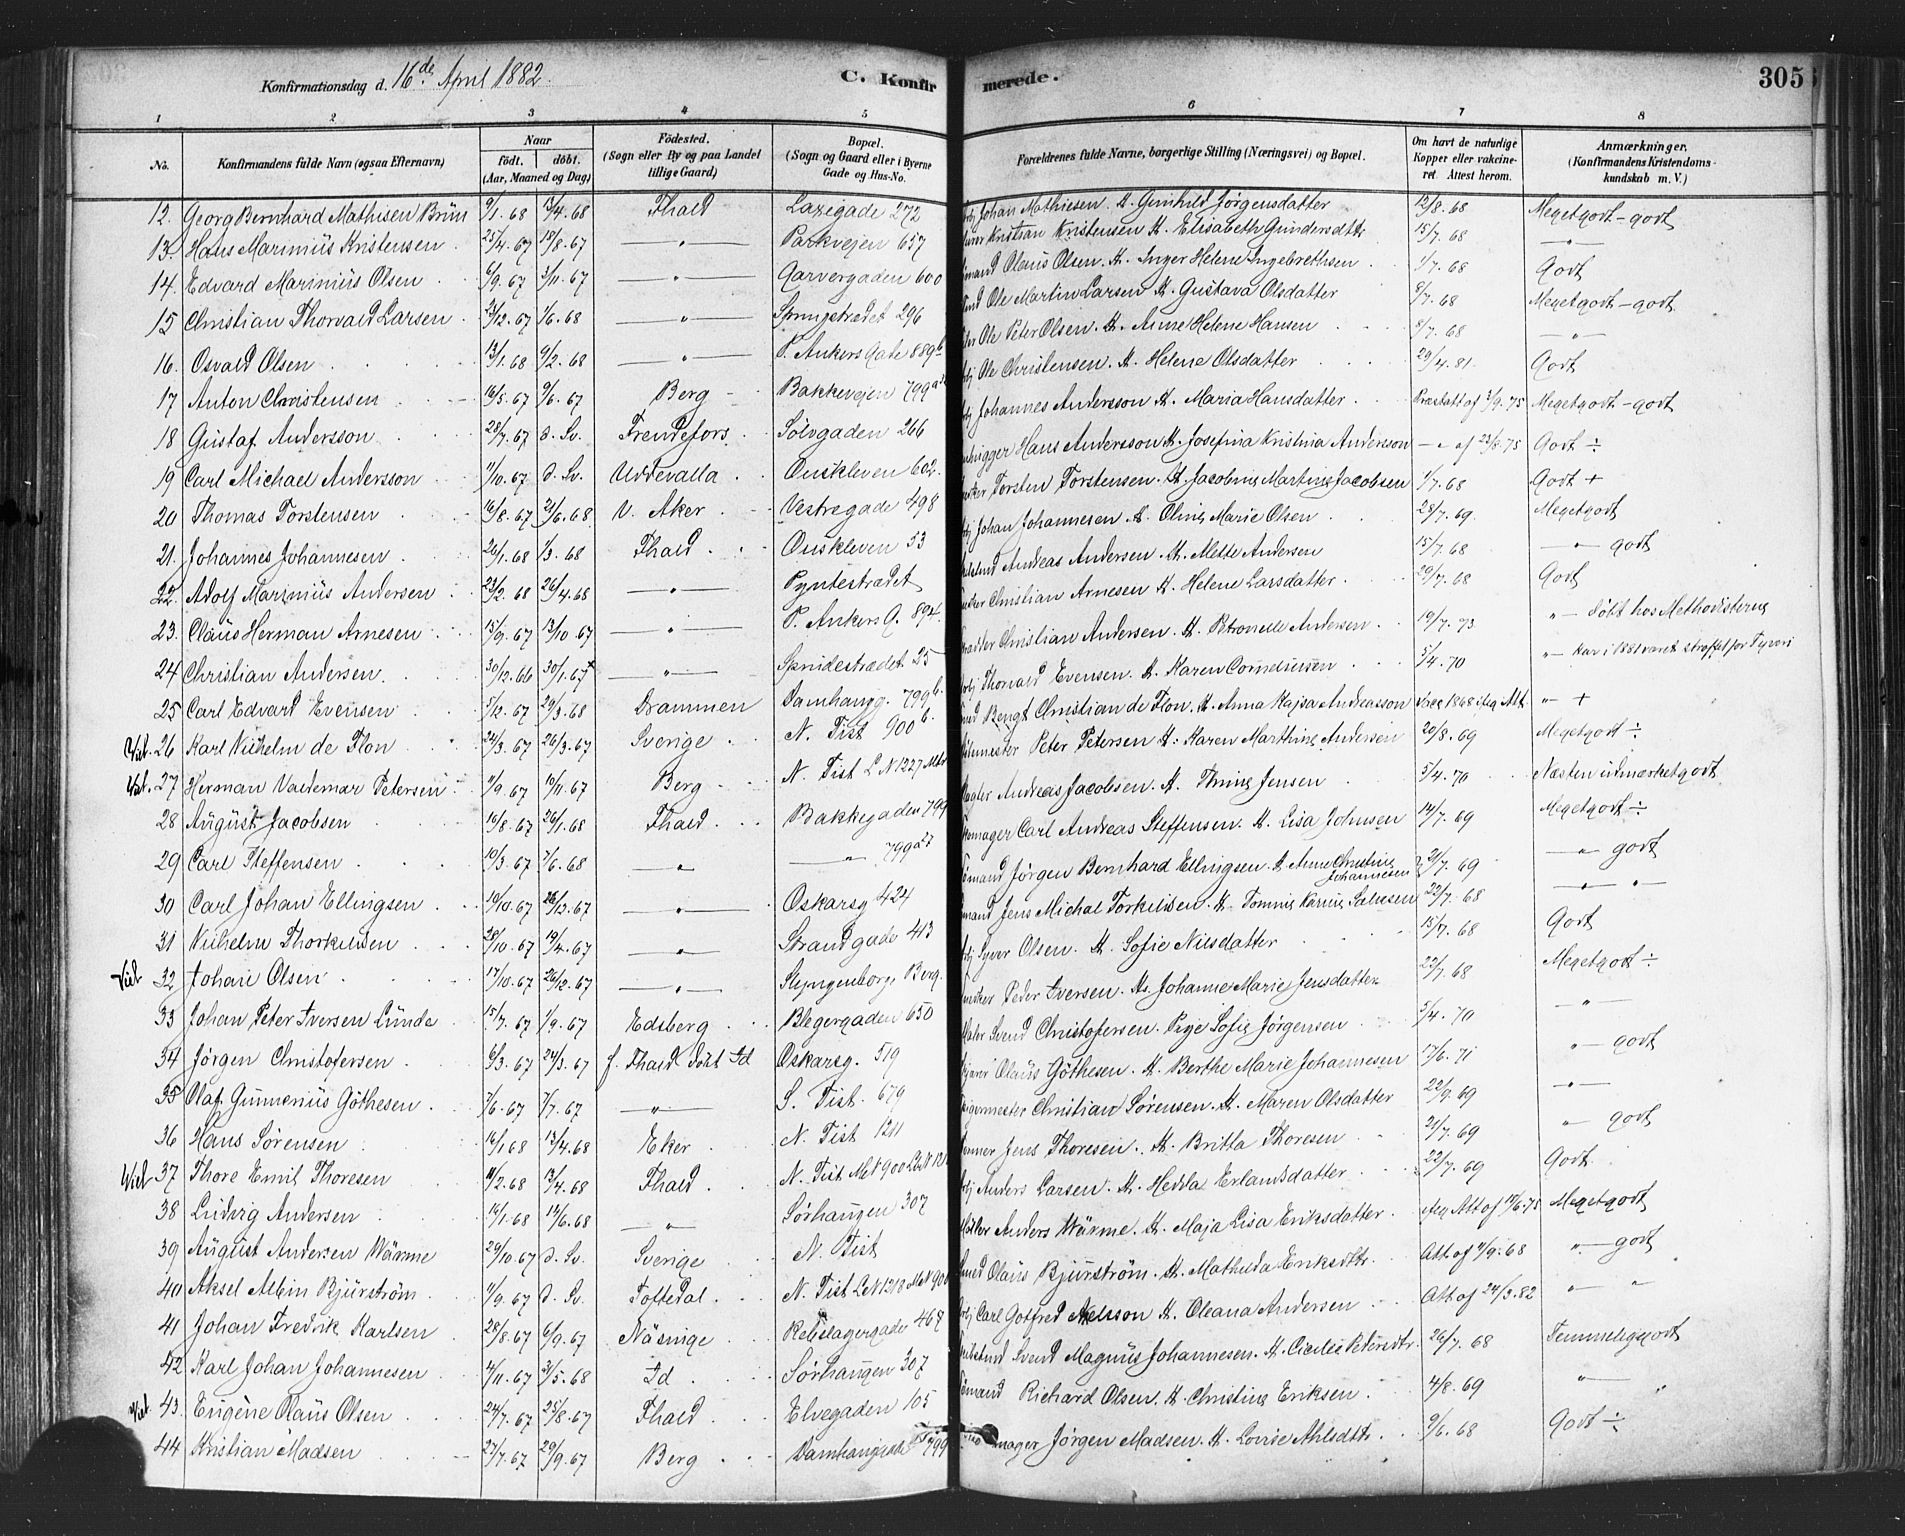 Konfirmationsdag d. 16de April 1882. C. Konfirmerede. 305
1 2 3 4 5 6 7 8
No. Konfirmandens fulde Navn (ogsaa Efternavn) Naar födt. döbt. (Aar, Maaned og Dag) Födested. (Sogn eller By og paa Landet tillige Gaard) Bopæl. (Sogn og Gaard eller i Byerne Gade og Hus-No. Forældrenes fulde Navne, borgerlige Stilling (Næringsvei) og Bopæl. Om havt de naturlige Kopper eller vakcineret. Attest herom. Anmærkninger. (Konfirmandens Kristendomskundskab m. V.)
12. Georg Bernhard Mathisen Brün 9/1. 68 13/4. 68 Fhald Laxegade 272 Johan Mathiesen. H. Gunhild Jørgensdatter 12/8. 68 Megetgodt - godt
13. Hans Marinius Kristensen 25/4. 67 18/8. 67 — " — Parkvejen 657 Kristian Kristensen H. Elisabeth Gundersdttr 15/7. 68 — " —
14. Edvard Marinius Olsen 6/9. 67 3/11. 67 — " — Garvergaden 600 Olaus Olsen. H. Inger Helene Ingebrethsen 1/7. 68 Godt
15 Christian Thorvald Larsen 23/12. 67 1/6. 68 — " — 296 Ole Martin Larsen H. Gustava Olsdatter 8/7. 68 Megetgodt - godt
16. Osvald Olsen 13/1. 68 9/2. 68 — " — P. Ankers Gade 889b Ole Peter Olsen. H. Anne Helene Hansen 8/7. 68 — " —
17 Anton Christensen 16/5. 67 9/6. 67 Berg Bakkevejen 799 Ole Christensen. H. Helene Olsdatter 29/4. 81. Godt
18 Gustaf Andersson 28/7. 67 d. Sv. Frendefors Sølvgaden 266 Johannes Andersson H. Maria Hansdatter Præstatt af 3/9. 75 Megetgodt - godt
19 Carl Michael Andersson 11/10. 67 d. Sv. Uddevalla Ouskleven 602 Hans Andersson H. Josefina Kristina Andersson — " af 23/8. 75 Godt ÷
20 Thomas Torstensen 16/8. 67 21/6. 68 V. Aker Vestregade 498 Torsten Torstensen. H. Jacobine Martine Jacobsen 1/7. 68 Godt +
21. Johannes Johannesen 26/1. 68 1/3. 68 Fhald Ouskleven 53 Johan Johannesen H. Oline Marie Olsen 28/7. 69. Megetgodt
22. Adolf Marinius Andersen 23/2. 68 26/4. 68 — " — Pyntestrædet Andreas Andersen. H. Mette Andersen 15/7. 68 — " — godt
23. Claus Herman Arnesen 15/9. 67 13/10. 67 — " — P. Ankers G. 894. Christian Arnesen H. Helene Larsdatter 29/7. 68 Godt
24 Christian Andersen. 30/12. 66 30/1. 67 — " — 25 Christian Andersen. H. Petronelle Andersen 19/7. 73 " — Døbt hos Methodisterne
25 Carl Edvard Evensen 5/12. 67 29/3. 68 Drammen Damhaugg. 799b. Thorvald Evensen. H. Karen Corneliussen 5/4. 70 " — har i 1881 været straffet for Tyveri
Viet. 26 Karl Vilhelm de Flon 24/3. 67 26/3. 67 Sverige N. Tist 900b. Bengt Christian de Flon. H. Anna Kajsa Andreasson " — +
Viet. 27 Herman Valdemar Petersen 11/9. 67 10/11. 67 Berg N. Tist L N 1227 Peter Petersen H. Karen Marthine Andersen 20/8. 69 Megetgodt ÷
28 August Jacobsen 16/8. 67 26/1. 68 Fhald Bakkegaden 799 Andreas Jacobsen. H. Thrine Jensen 5/4. 70 Næsten udmærketgodt
29 Carl Steffensen 10/3. 67 7/6. 68 — " — — " — 799 Carl Andreas Steffensen. H. Lisa Johnsen 14/7. 69 Megetgodt ÷
30 Carl Johan Ellingsen 10/10. 67 26/12. 67 — " — Oskarsg 424 Jørgen Bernhard Ellingsen. H. Anne Christine Johannesen 21/7. 69 — " — godt
31 Vilhelm Thorkildsen 28/10. 67 19/4. 67 — " — Strandgade 413 Jens Michal Torkildsen H. 22/7. 68 — " — " —
Viet 32 Johan Olsen 17/10. 67 26/12. 67 — " — Slyngenborg. Berg. Syver Olsen. H. Sofie Nilsdatter 15/7. 68 Godt
33 Johan Peter Iversen Lunde 15/7. 67 1/9. 67 Edsberg Blegergaden 650 Peder Iversen. H. Johanne Marie Jensdatter 22/7. 68 Megetgodt ÷
34 Jørgen Christofersen 6/3. 67 24/3. 67 f. Fhald døbt Id Oskarsg. 519 Svend Christofersen. Pige Sofie Jørgensen 5/4. 70 — " —
35 Olaf Gunnerius Göthesen 7/6. 67 7/7. 67 — " — S. Tist. 679 Olaus Göthesen. H. Berthe Marie Johannesen 17/6. 71 " — godt
36 Hans Sørensen 16/1. 68 13/4. 68 Eker N. Tist 1211 Christian Sørensen. H. Maren Olsdatter 22/9. 69 — " —
Viet 37 Thore Emil Thoresen 11/2. 68 13/4. 68 Fhald N. Tist M N 900 L N Jens Thoresen. H. Britta Thoresen 21/7. 69 " — godt
38 Ludvig Andersen 14/1. 68 14/6. 68 — " — Sørhaugen 307 Anders Larsen. H. Hedda Erlandsdatter 22/7. 69 Godt
39 August Andersen Wärme 29/10. 67 d. Sv. Sverige N. Tist Anders Wärme. H. Maja Lisa Eriksdatter Att af 17/6. 75 Megetgodt
40 Aksel Albin Bjurström 11/9. 67 d. Sv. Tottedal N. Tist L N 1218 M N 900 Olaus Bjurström. H. Mathilda Eriksdtr. Att af 11/9. 68 " — godt
41 Johan Fredrik Karlsen 28/8. 67 6/9. 67 Näsinge Rebslagergade 467 Carl Gotfred Nelsson H. Oleana Andersen Att af 24/3. 82 " — "
42 Karl Johan Johannesen 4/11. 67 31/5. 68 Id Sørhaugen 307 Svend Magnus Johannesen. H. Cicilie Petersdtr. 26/7. 68 Temmeliggodt
Viet 43. Eugène Olaus Olsen 24/7. 67 25/8. 67 Fhald Elvegaden 105 Richard Olsen. H. Christine Eriksen 4/8. 69 " — "
44 Kristian Madsen 27/7. 67 29/9. 67 Berg 799 Jørgen Madsen. H. Lovise 9/6. 68 Godt ÷